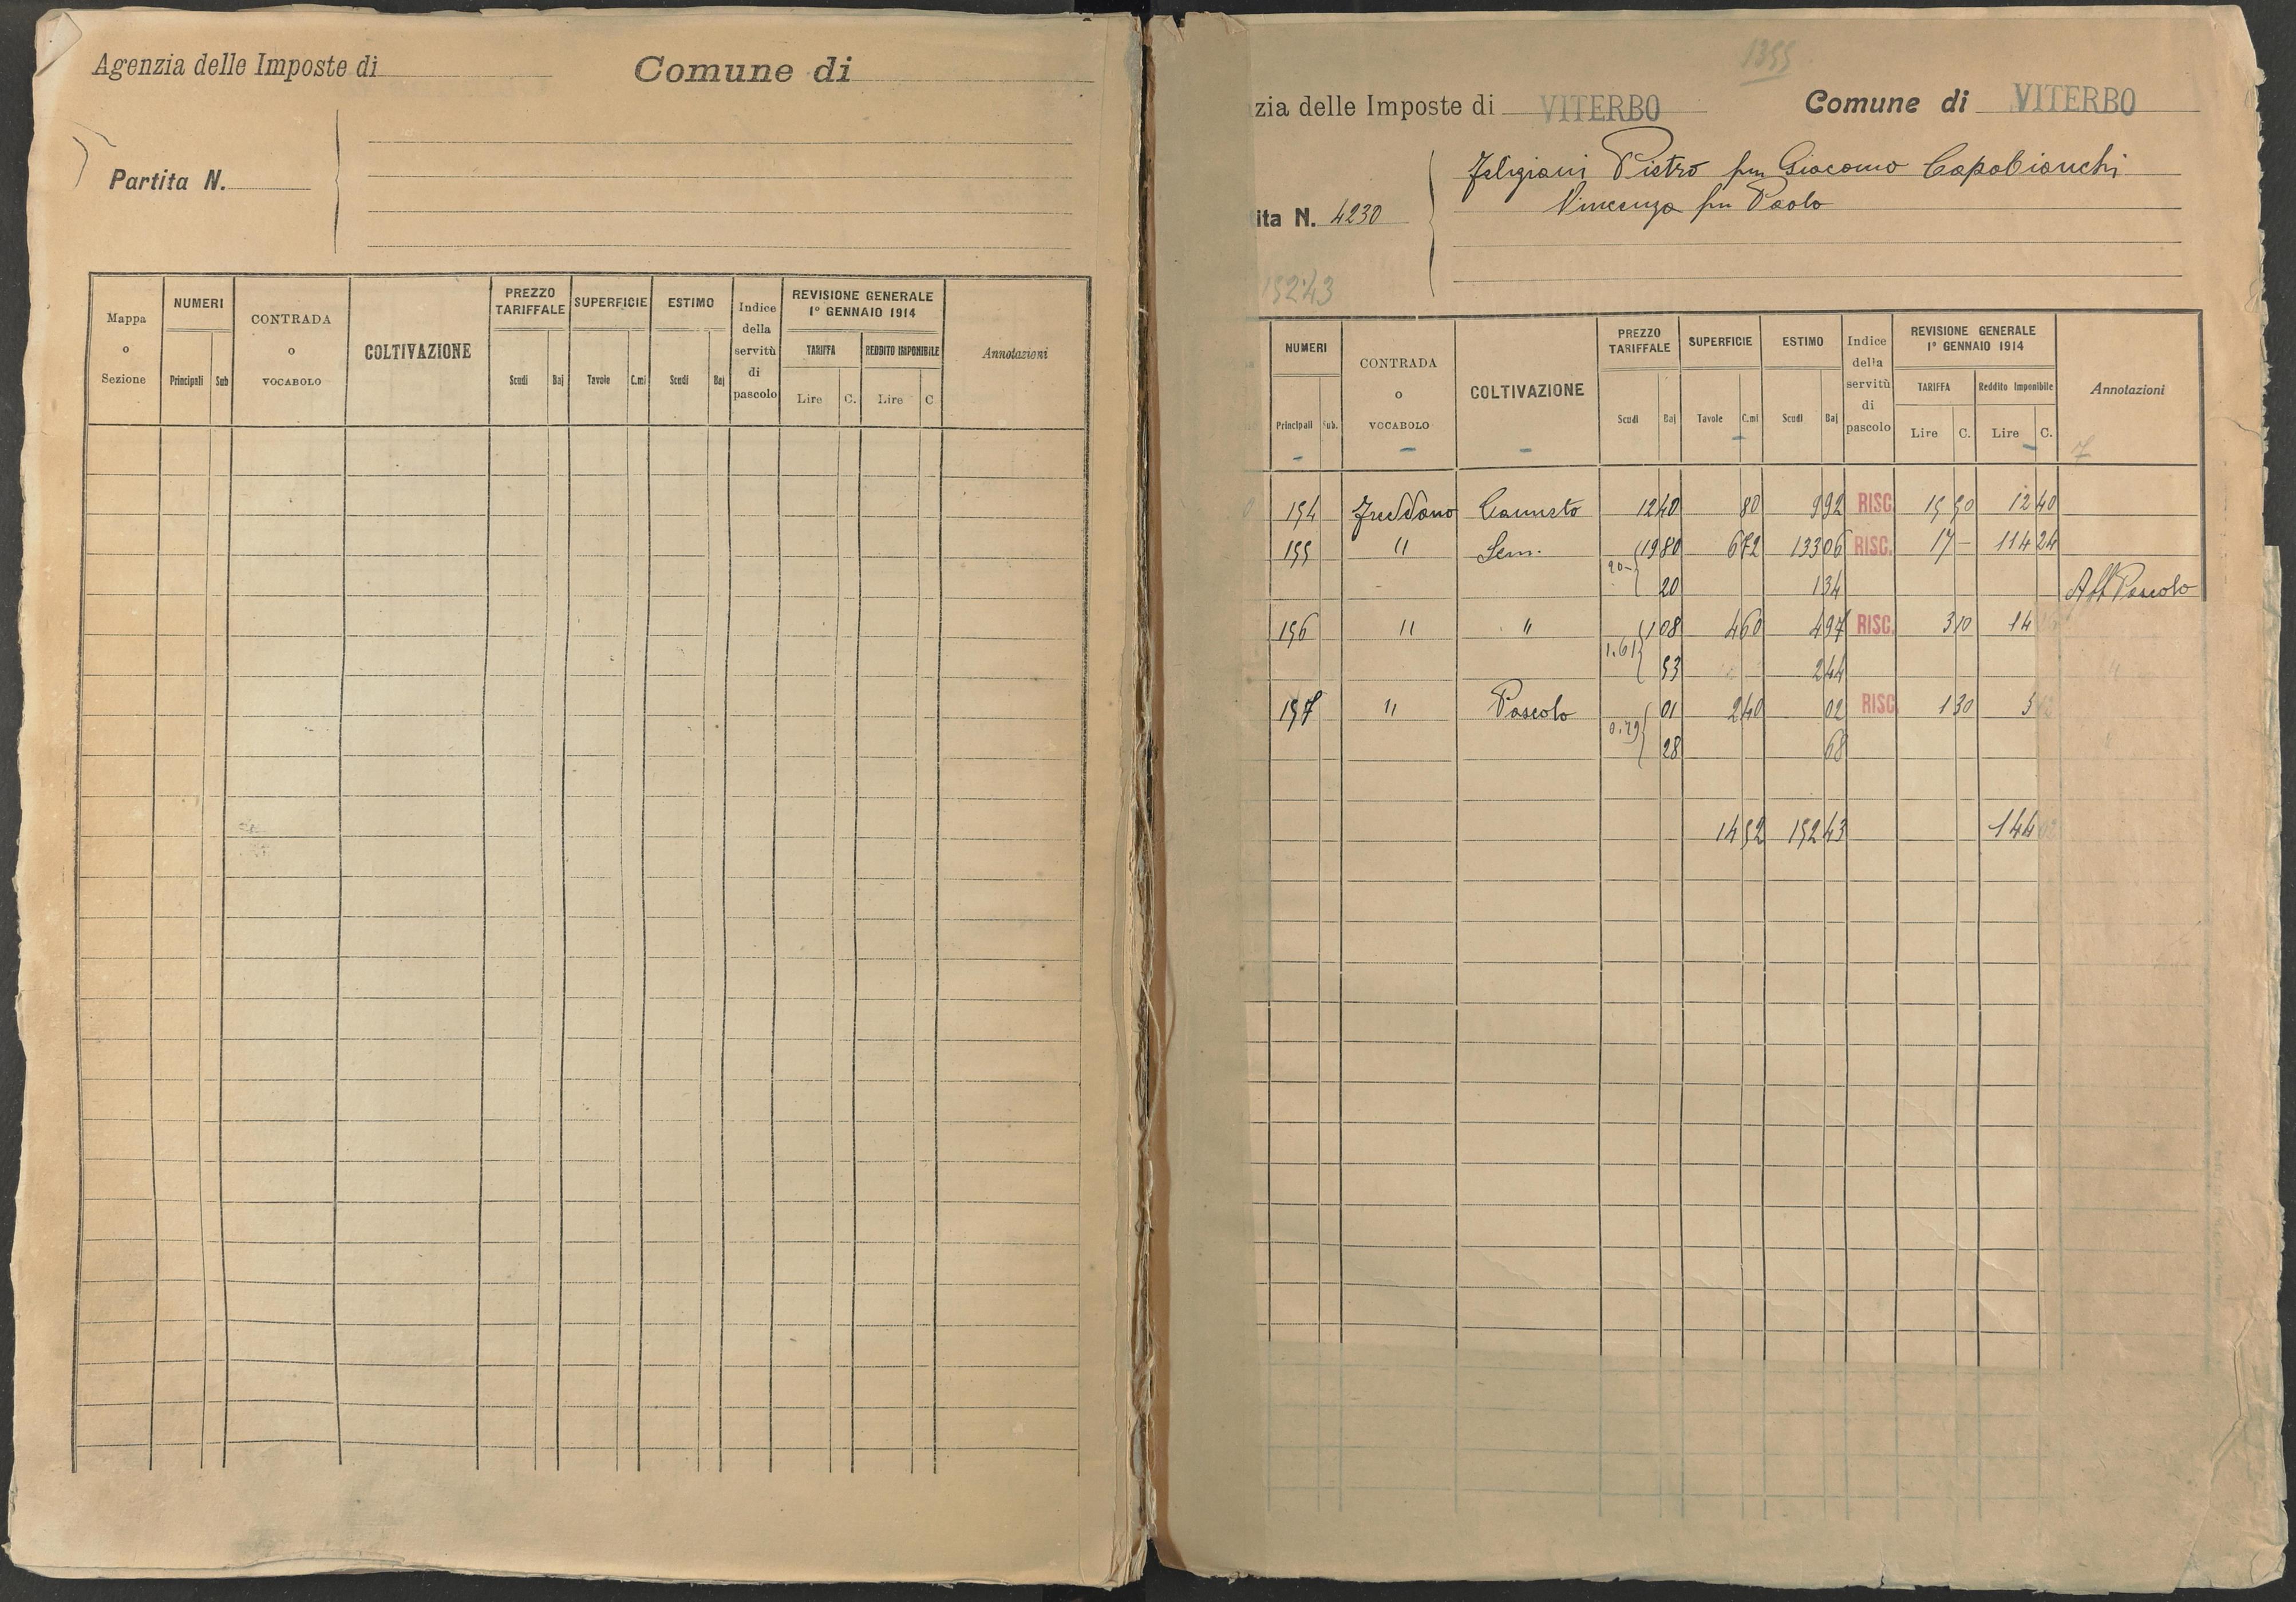 Agenzia delle Imposte di
Comune di
Partita N.
Mappa o Sezione
NUMERI
Principali Sub
CONTRADA o VOCABOLO
COLTIVAZIONE
PREZZO TARIFFALE
Scudi Baj
SUPERFICIE
Tavole C.mi
ESTIMO
Scudi Baj
Indice della servitù di pascolo
REVISIONE GENERALE 1° GENNAIO 1914
TARIFFA
Lire C.
REDDITO IMPONIBILE
Lire C
Annotazioni
1355
zia delle Imposte di VITERBO
Comune di VITERBO
Pietro fu Giacomo Capobianchi
Vincenza fu Paolo
ita N. 4230
152.43
NUMERI
Principali Sub.
CONTRADA o VOCABOLO
COLTIVAZIONE
PREZZO TARIFFALE
Scudi Baj
SUPERFICIE
Tavole C.mi
ESTIMO
Scudi Baj
Indice della servitù di pascolo
REVISIONE GENERALE 1° GENNAIO 1914
TARIFFA
Lire C.
Reddito Imponibile
Lire C.
Annotazioni
154 Freddano Canneto 12 40 80 9 92 RISC 15 50 12 40
155 " Sem. 19 80 6 72 133 06 RISC. 17 – 114 24
20– 20 1 34 Aff Pascolo
156 " " 1 08 4 60 4 97 RISC. 3 10 14
1.61 53 2 44 "
157 " Pascolo 01 2 40 02 RISC 1 30 3
0.29 28 68 "
14 52 152 43 144